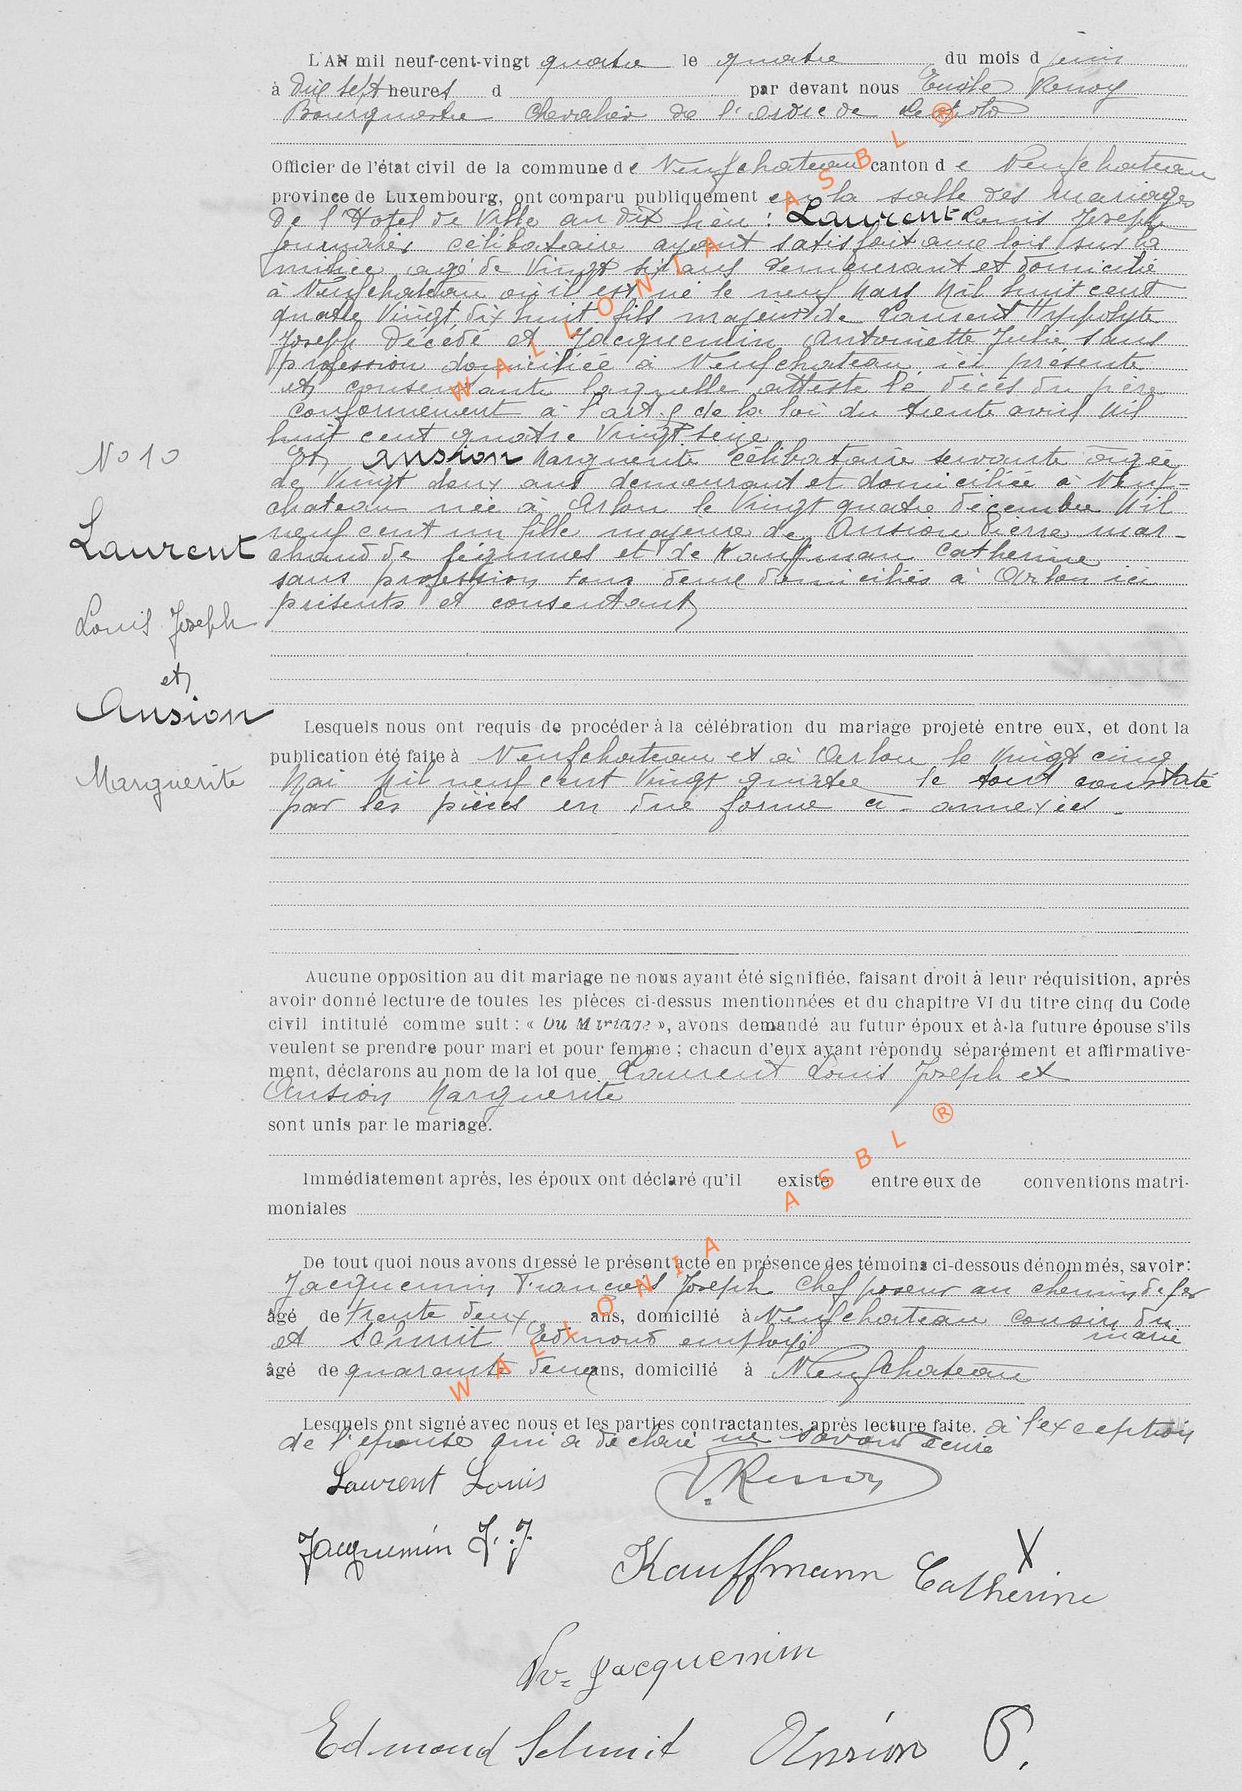 L'AN mil neuf-cent-vingt quatre le quatre du mois d juin
à dix sept heures d par devant nous Emile Renoy
Bourgmestre Chevalier de l'ordre de Léopold
Officier de l'état civil de la commune de Neufchateau canton de Neufchateau
province de Luxembourg, ont comparu publiquement en la salle des mariages
de l'Hotel de Ville au dit lieu : Laurent Louis Joseph
journalier célibataire ayant satisfait aux lois sur la
milice agé de Vingt six ans demeurant et domicilié
à Neufchateau où il est né le neuf Mars Mil huit cent
quatre Vingt dix huit fils majeur de Laurent Hyppolyte
Joseph décédé et Jacquemin Antoinette Julie sans
profession domiciliée à Neufchateau ici présente
et consentante laquelle atteste le décès du père
conformement à l'art. 8 de la loi du trente avril Mil
huit cent quatre Vingt seize
N° 10
Et Ansion Marguerite célibataire servante agée
de Vingt deux ans demeurant et domiciliée à Neuf-
chateau née à Arlon le Vingt quatre décembre Mil
neuf cent un fille majeure de Ansion Pierre mar-
Laurent
chand de légumes et de Kauffman Catherine
sans profession tous deux domiciliés à Arlon ici
présents et consentant
Louis Joseph
et
Ansion
Marguerite
Lesquels nous ont requis de procéder à la célébration du mariage projeté entre eux, et dont la
publication été faite à Neufchateau et à Arlon le Vingt cinq
Mai Mil neuf cent Vingt quatre le tout constaté
par les pièces en due forme ci-annexées
Aucune opposition au dit mariage ne nous ayant été signifiée, faisant droit à leur réquisition, après
avoir donné lecture de toutes les pièces ci-dessus mentionnées et du chapitre VI du titre cinq du Code
civil intitulé comme suit : « Du Mariage », avons demandé au futur époux et à la future épouse s'ils
veulent se prendre pour mari et pour femme ; chacun d'eux ayant répondu séparément et affirmative-
ment, déclarons au nom de la loi que Laurent Louis Joseph et
Ansion Marguerite
sont unis par le mariage.
Immédiatement après, les époux ont déclaré qu'il existe entre eux de conventions matri-
moniales
De tout quoi nous avons dressé le présent acte en présence des témoins ci-dessous dénommés, savoir :
Jacquemin François Joseph chef poseur au chemin de fer
âgé de trente deux ans, domicilié à Neufchateau cousin du
marié
et Schmit Edmond employé
âgé de quarante deux ans, domicilié à Neufchateau
Lesquels ont signé avec nous et les parties contractantes, après lecture faite. à l'exception
de l'épouse qui a déclaré ne savoir écrire
Laurent Louis
E. Renoy
Jacquemin F. J.
X
Kauffmann Catherine
Vve Jacquemin
Edmond Schmit
Ansion P.
WALLONIA ASBL ®
WALLONIA ASBL ®